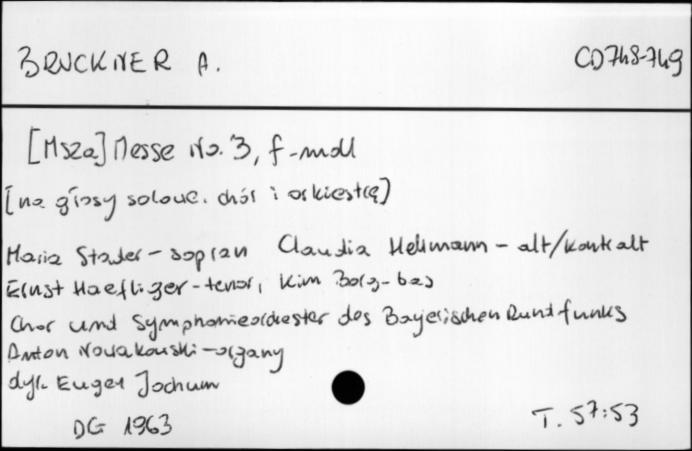 BRUCKNER A.
CD748-749
[Msza] Messe No. 3, f-moll
[na głosy solowe. chór i orkiestrę]
Maria Stader - sopran Claudia Hellmann - alt/kontralt
Ernst Haefliger - tenor, Kim Borg - bas
Chor und Symphonieorchester des Bayerischen Rundfunks
Anton Nowakowski - organy
dyr. Eugen Jochum
DG 1963
T. 57:53